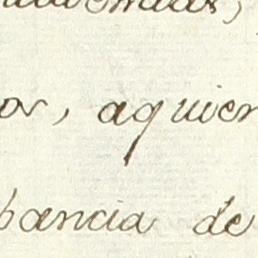 os, aquien
pancia de